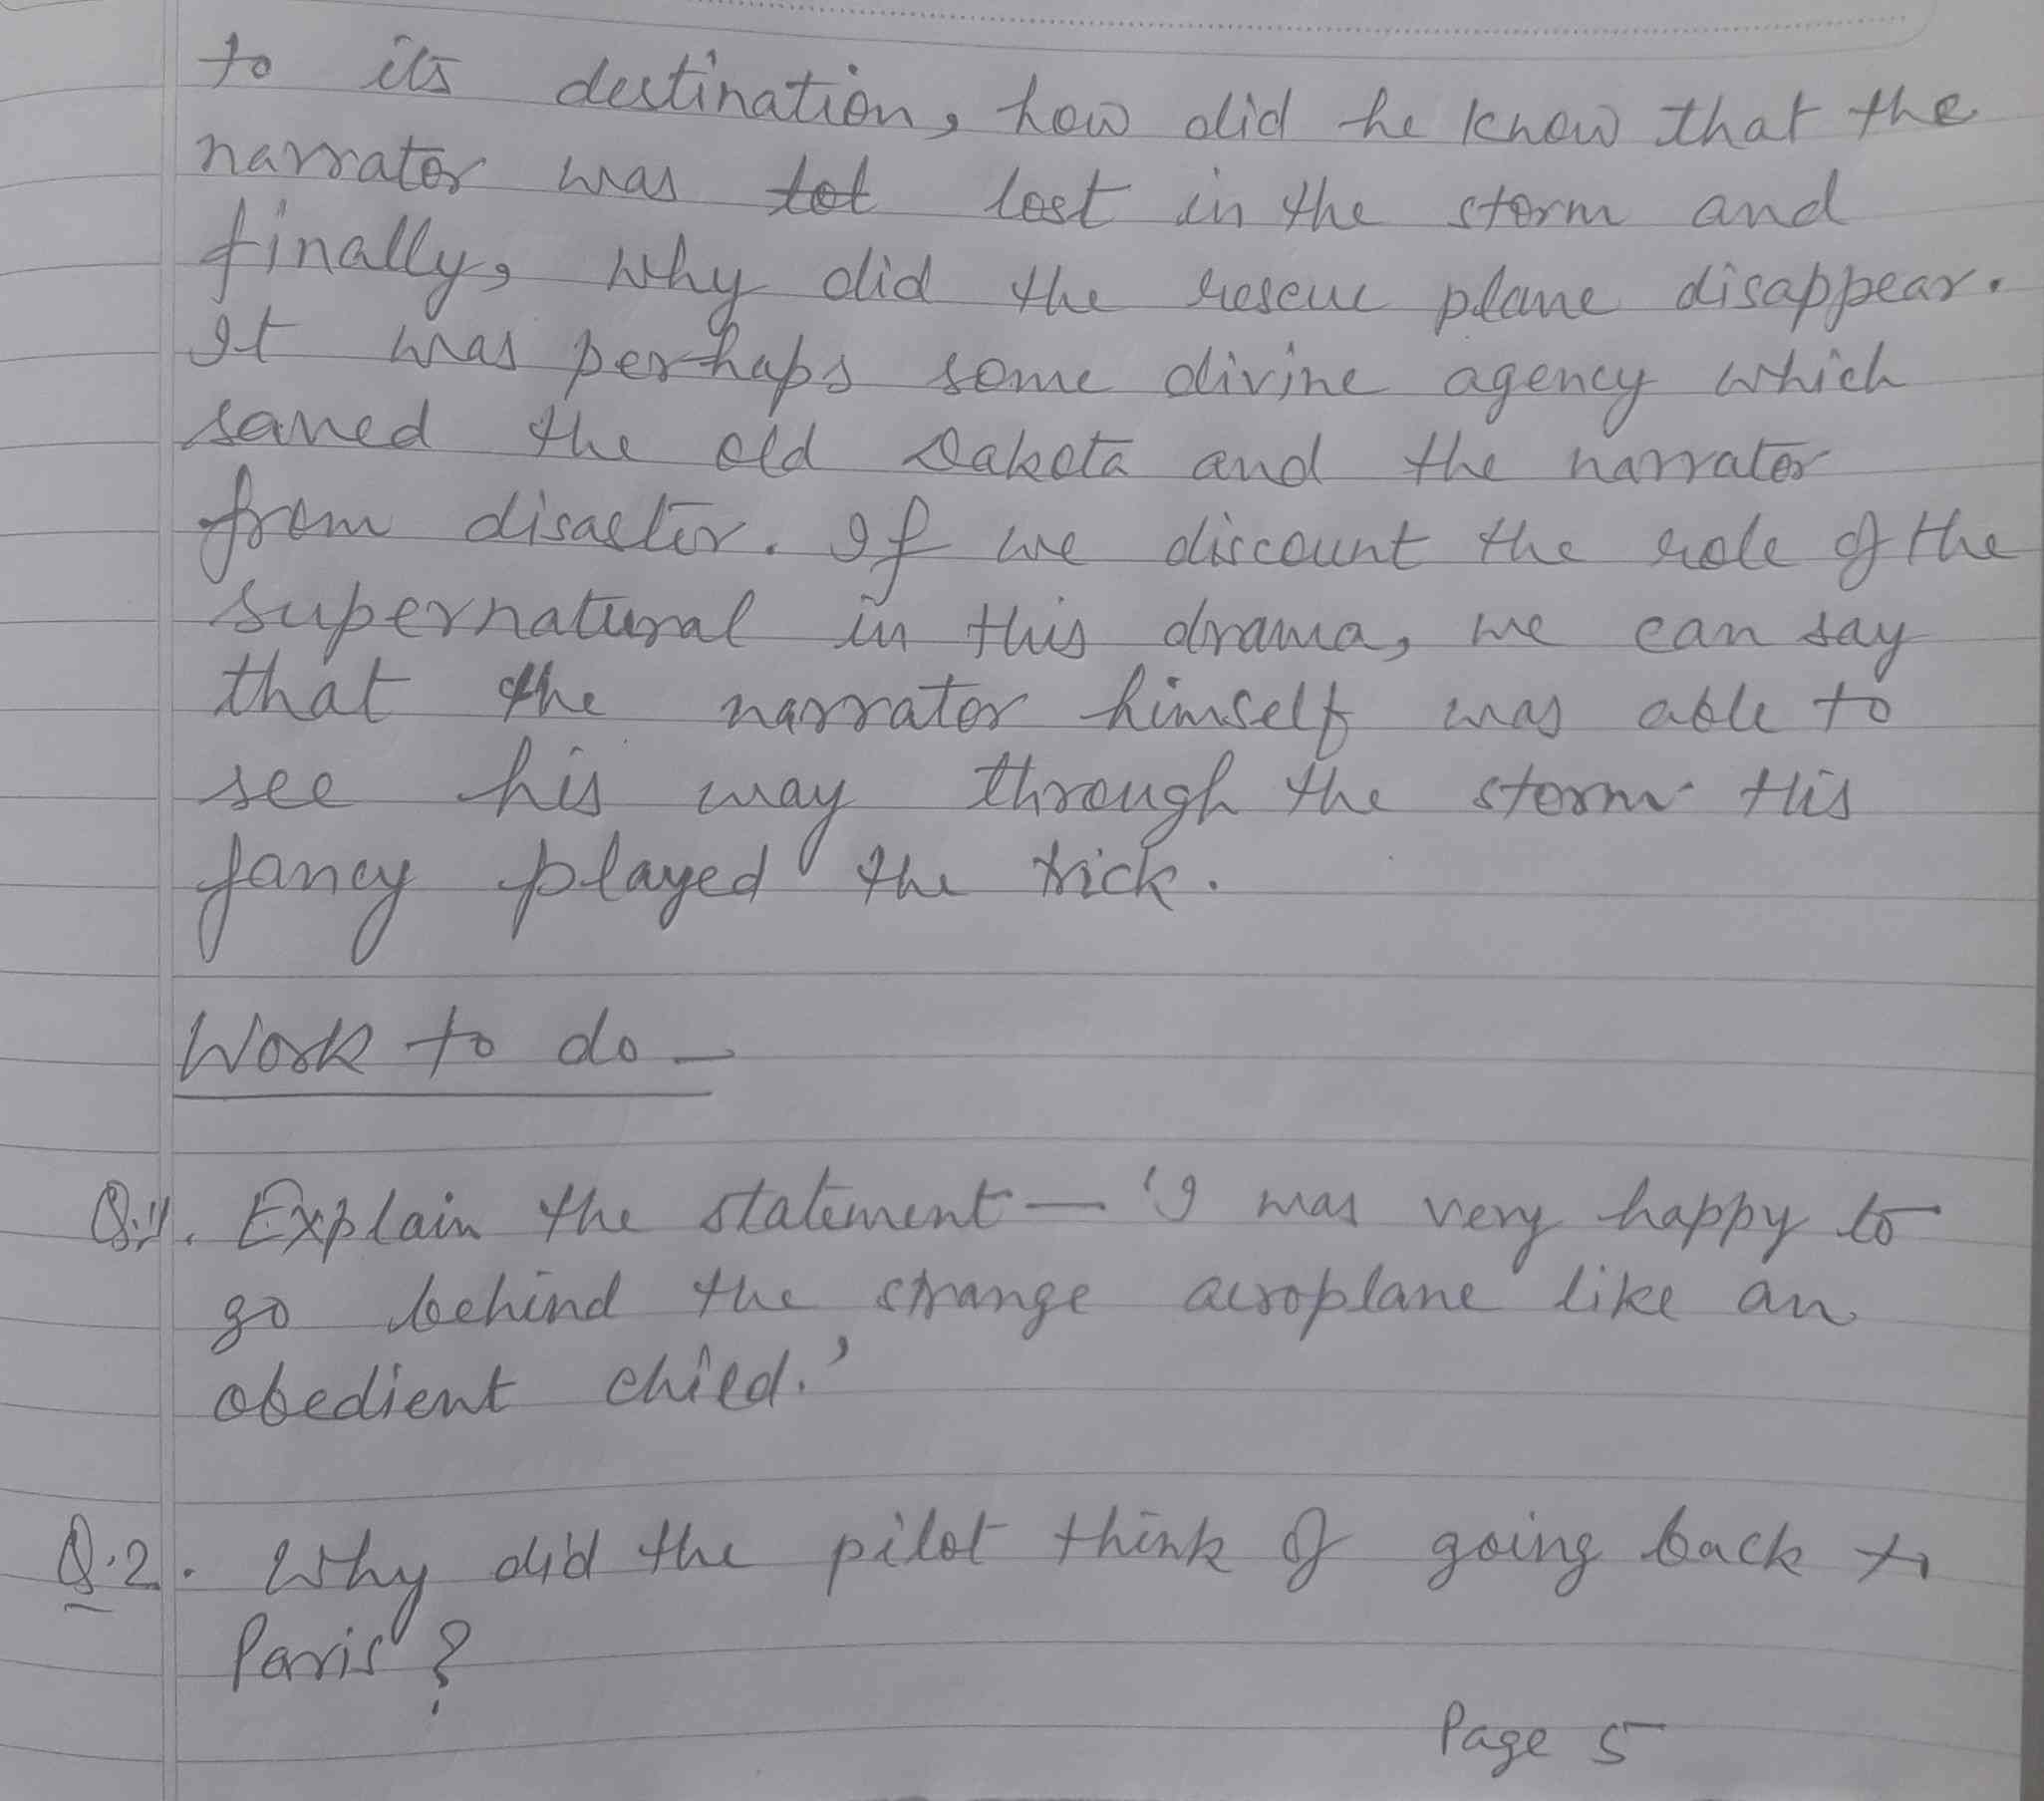 to its destination, how did he know that the
narrator was tot lost in the storm and
finally, why did the rescue plane disappear.
It was perhaps some divine agency which
saved the old Dakota and the narrator
from disaster. If we discount the role of the
supernatural in this drama, we can say
that the narrator himself was able to
see his way through the storm. His
fancy played the trick.
Work to do -
Q.1. Explain the statement - 'I was very happy to
go behind the strange aeroplane like an
obedient child.'
Q.2. Why did the pilot think of going back to
Paris?
Page 5